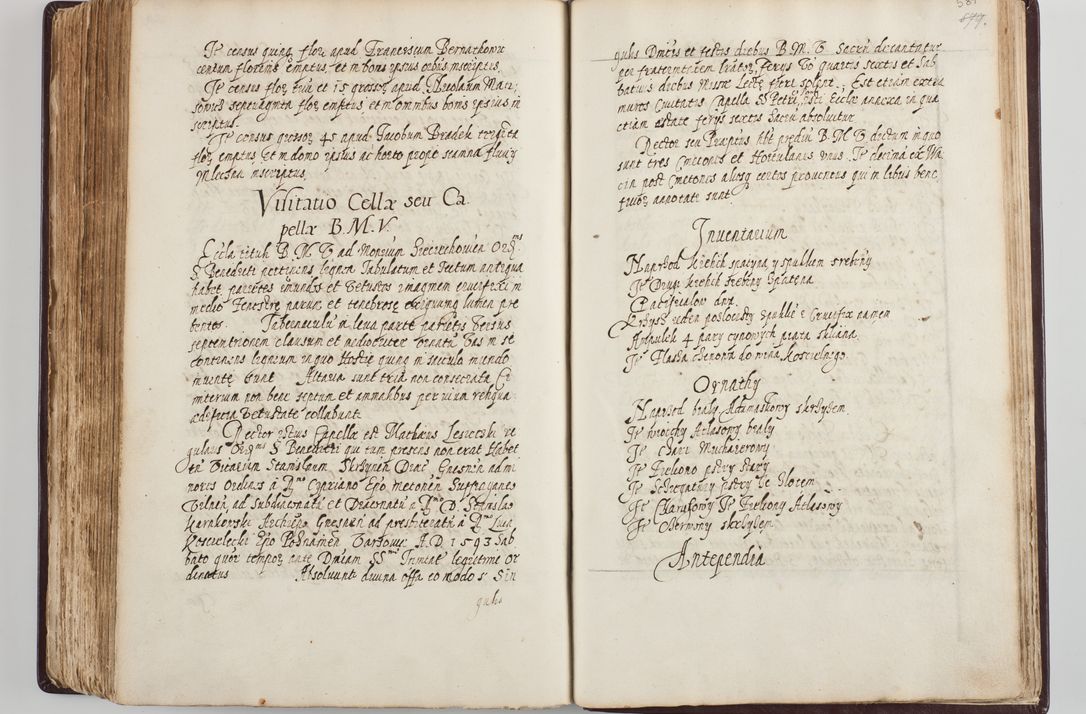 It census quinq flor apud Franciscum Bernathowic
centum florenis emptus, et in bonis ipsius orbis, inscriptus
It census flor tria et 15 grossor apud Nicolaum Mari
septuaginta flor emptus et in omnibus bonis ipsius in
scriptus
It census grossor 45 apud Jacobum Bradek triginta
flor emptus, Et in domo ipsius ac horto prope stamna fluvy
Mlechna inscriptus
Visitatio Cellæ seu Ca
pellæ B. M. V.
Eccla tituli B. M. V ad Monrium Sieciechovien Ord
S Benedicti pertinens, lignea Tabulatum et Tectum antiqua
habet parietes inundos et Vetustos imaginem crucifixi in
medio Fenestre parum et tenebrose exiguumq lumen pre
bentes. Tabernaculū in leva parte parietis Versus
septentrionem clausum et mediocriter Venatū Vas in se
continens ligneum in quo Hostie quinq in vasculo mundo
invente sunt Altaria sunt tria non consecrata Ci
miterium non bene septum et animalibus pervium reliqua
ædificia Vetustate collabunt
Rector istius Capellæ est Mathæus Leszczki re
gularis S Benedicti qui tum presens non erat Habet
tn Vicarium Stanislaum Skrsynen Diæc Gnesnen ad mi
nores Ordines à R Cypriano Epo Meconen Suffraganeo
Vilnen, ad Subdiaconatū et Diaconatū à R D. Stanislao
Karnkovski Archiepo Gnesnen ad presbiteratū à R Luca
Koscielecki Epo Posnanien Varsovie A. D. 1593 Sab
bato quor tempor ante Dnicam SS Trinitat legitime or
dinatus Absolvunt divina offa eo modo s. Sin
gulis
581
gulis Dnicis et festis diebus B. M. V Sacrū decantatur
per fraternitatem Ferys Vo quartis sextis et Sab
bativis diebus Missæ Lectæ fieri solent. Est etiam extra
muros Civitatis Capella S. Petri, isti Ecclæ anexa in qua
etiam æstate ferys sextis Sacrū absolvitur
Rector seu Præptus hēt prediū B. M. V dictum in quo
sunt tres Cmetones et Hortulanis unus. It decima ex Wa
cin post Cmetones aliosq certos proventus qui in libris bene
ficior annotati sunt.
Inventarium
Naprsod kielich spatyną y spuklem srebrny
It Drugi kielich srebrny Spatyną
Corporalow dwa
Krsysz ieden poslocisty Spuklie e Crucifix na nem
Ampulek 4 pary cynowych piąta skliana
It Flaska cienopa do wina Koscielnego
Ornathy
Naprsod bialy Adamaskowy skrsyzem
It drochi Atlasowy bialy
It Czarni Mucharerowy
It Zielono pstry stary
It Czarwony pstry Ze Slocem
It Czarwony It Zielony Atlasowy
It Czerwony skrsyzem
Antependia